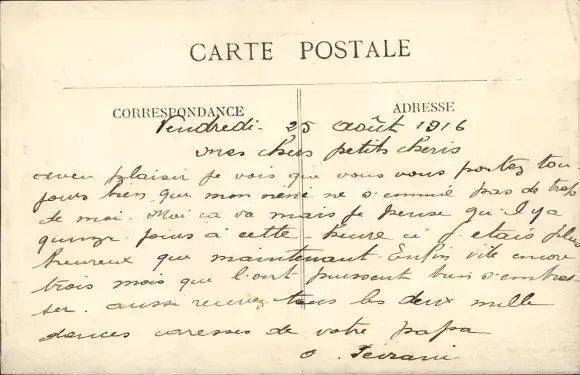 CARTE POSTALE
CORRESPONDANCE
ADRESSE
Vendredi - 25 Août 1916
mes chers petits cheris
avec plaisir je vois que vous vous portez tou-
jours bien, que mon néné ne s'ennuie pas de trop
de moi. Moi ca va mais je pense qu'il y a
quinze jours à cette heure ci j'étais plus
heureux que maintenant Enfin vite encore
trois mois que l'ont puissent bien s'embras-
ser. aussi recevez tous les deux mille
douces caresses de votre papa